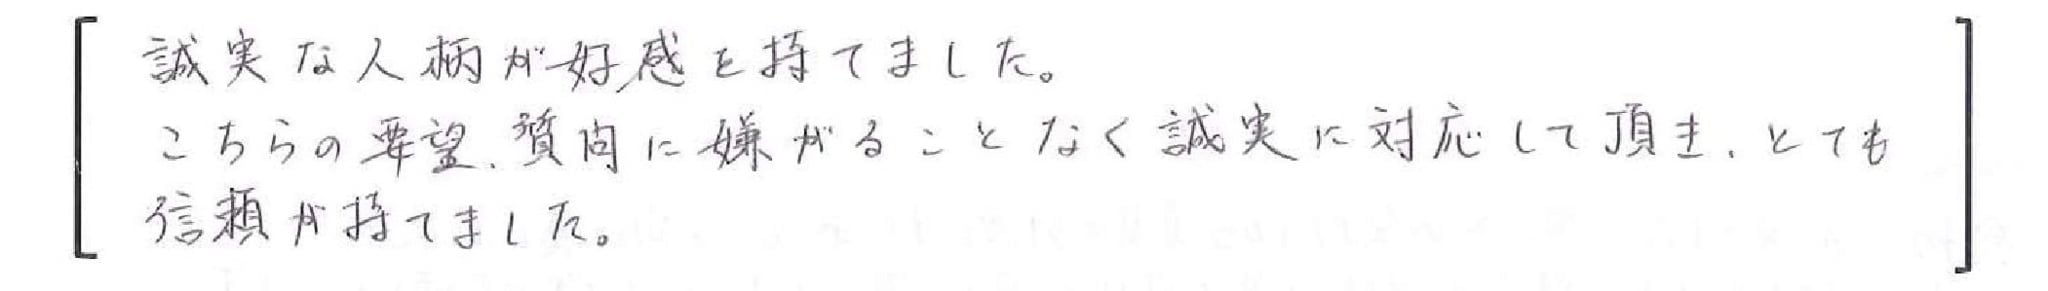 誠実な人柄が好感を持てました。
こちらの要望、質問に嫌がることなく誠実に対応して頂き、とても
信頼が持てました。